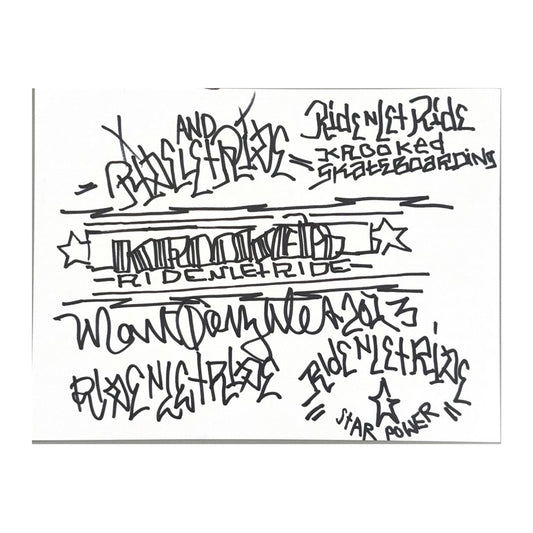 AND
RIDELETRIDE
RidenLetRide
KROOKed
SKateBOARDING
KROOKED
RIDENLETRIDE
Mark Gonzales 2023
RIDENLETRIDE
RIDENLETRIDE
StAR POWER